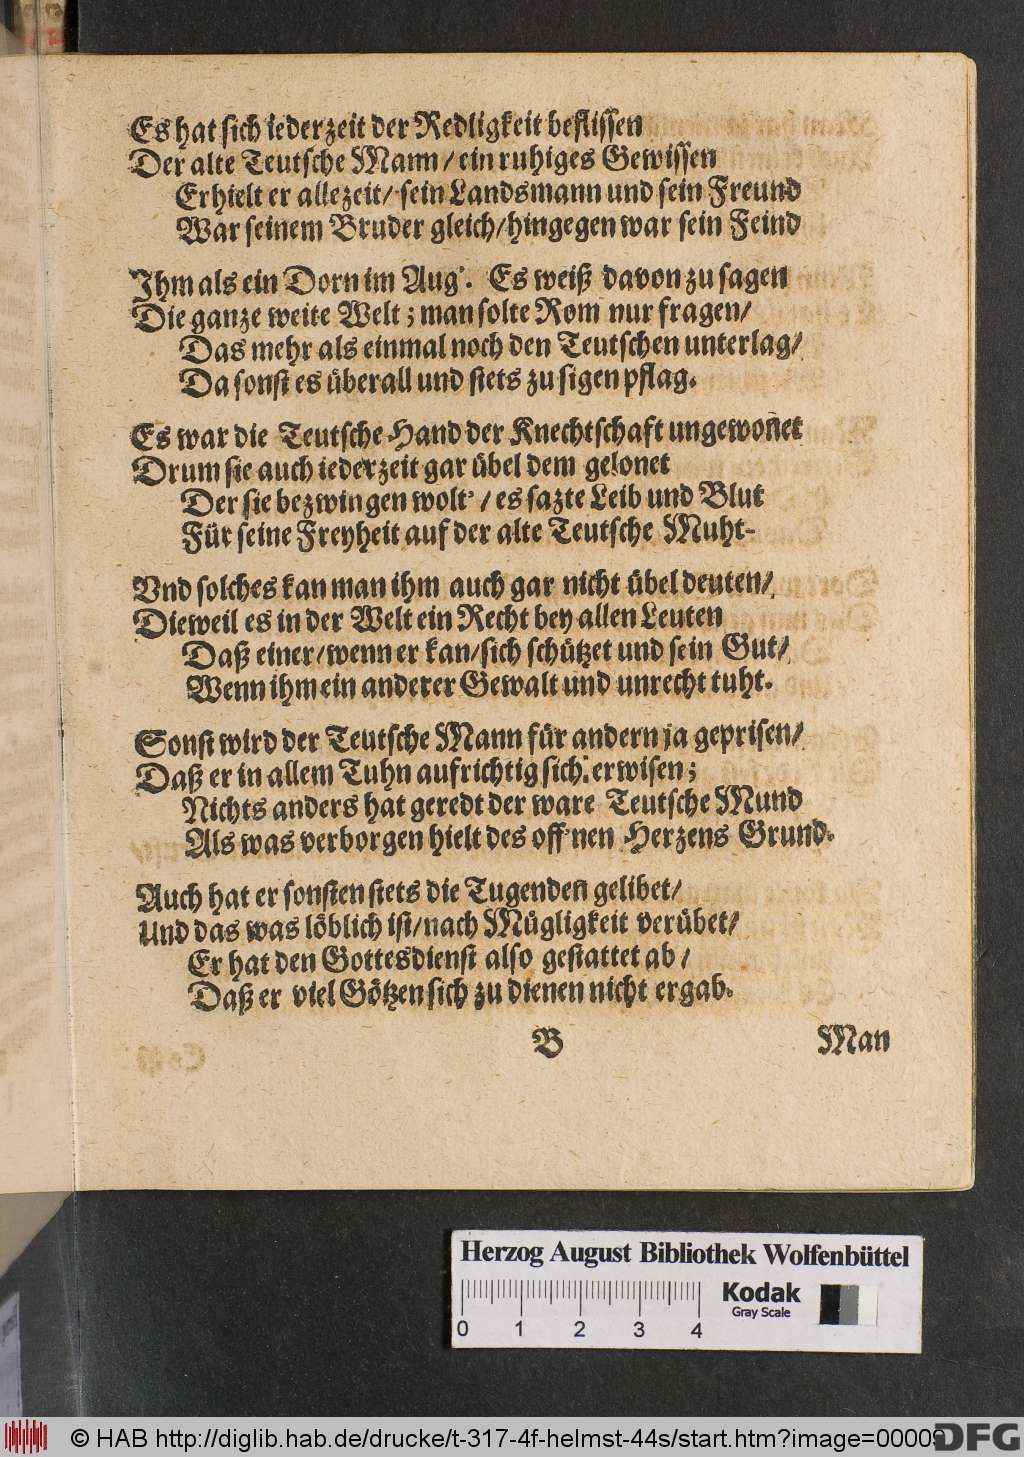 Es hat sich iederzeit der Redligkeit beflissen
Der alte Teutsche Mann / ein ruhiges Gewissen
Erhielt er allezeit / sein Landsmann und sein Freund
War seinem Bruder gleich / hingegen war sein Feind
Ihm als ein Dorn im Aug'. Es weiß davon zu sagen
Die ganze weite Welt; man solte Rom nur fragen /
Das mehr als einmal noch den Teutschen unterlag /
Da sonst es überall und stets zu sigen pflag.
Es war die Teutsche Hand der Knechtschaft ungewoñet
Drum sie auch iederzeit gar übel dem gelonet
Der sie bezwingen wolt' / es sazte Leib und Blut
Für seine Freyheit auf der alte Teutsche Muht.
Vnd solches kan man ihm auch gar nicht übel deuten /
Dieweil es in der Welt ein Recht bey allen Leuten
Daß einer / wenn er kan / sich schützet und sein Gut /
Wenn ihm ein anderer Gewalt und unrecht tuht.
Sonst wird der Teutsche Mann für andern ja geprisen /
Daß er in allem Tuhn aufrichtig sich erwisen;
Nichts anders hat geredt der ware Teutsche Mund
Als was verborgen hielt des off'nen Herzens Grund.
Auch hat er sonsten stets die Tugenden gelibet /
Und das was löblich ist / nach Mügligkeit verübet /
Er hat den Gottesdienst also gestattet ab /
Daß er viel Götzen sich zu dienen nicht ergab.
B Man
Herzog August Bibliothek Wolfenbüttel
Kodak
Gray Scale
0 1 2 3 4
© HAB http://diglib.hab.de/drucke/t-317-4f-helmst-44s/start.htm?image=00009
DFG